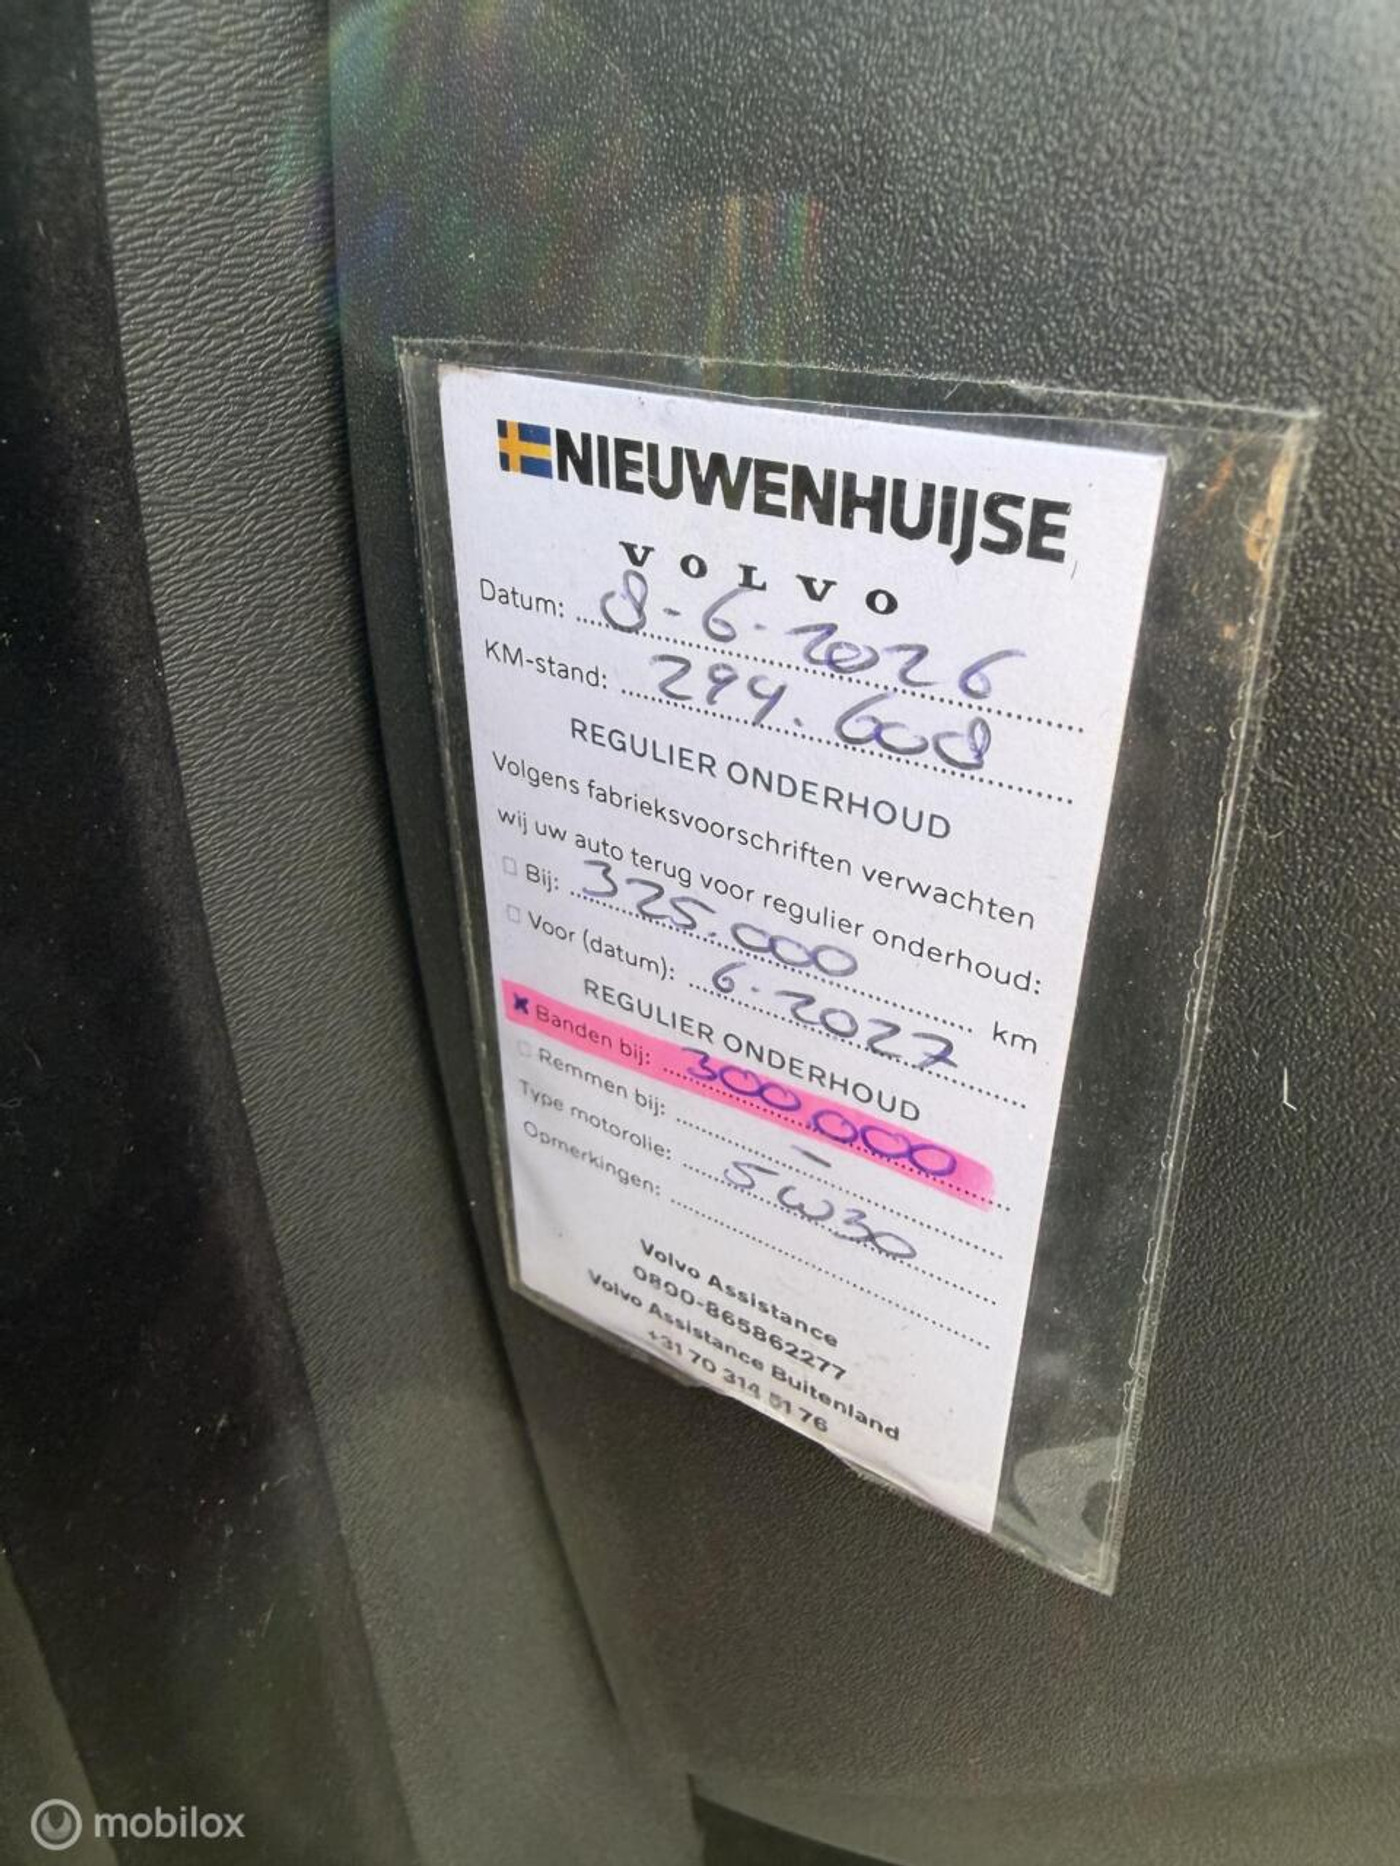 NIEUWENHUIJSE
VOLVO
Datum: 8-6-2026
KM-stand: 294.608
REGULIER ONDERHOUD
Volgens fabrieksvoorschriften verwachten
wij uw auto terug voor regulier onderhoud:
Bij: 325.000 km
Voor (datum): 6-2027
REGULIER ONDERHOUD
x Banden bij: 300.000
Remmen bij: -
Type motorolie: 5W30
Opmerkingen:
Volvo Assistance
0800-865862277
Volvo Assistance Buitenland
+31 70 314 51 76
mobilox